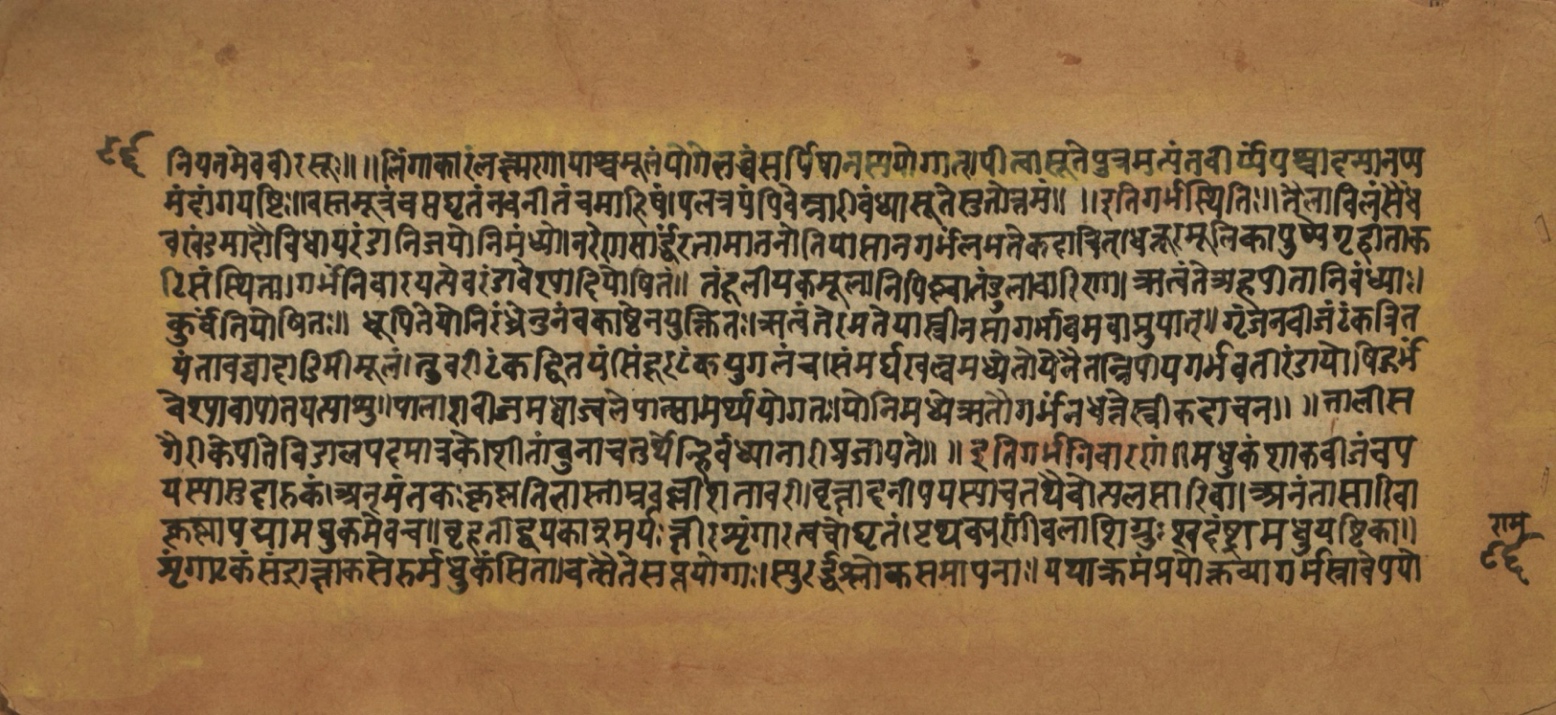 नियतमेववीरसूः॥ ॥लिंगाकारंलक्ष्मरणायाश्चमूलंयोगेलब्धंसर्पिषानस्ययोगात्। पीत्वासूतेपुत्रमत्यंतवीर्य्यंपश्चाद्दद्यानप्य
मंदांगयष्टिः॥वस्तमूत्रंचसघृतंनवनीतंचमाहिषं। पलत्रयंपिबेन्नारीवंध्यासूतेसुतोत्तमं॥ ॥इतिगर्भस्थितिः॥ तैलाविलंसैंध
वखंडमादौविधायरंडानिजयोनिमध्ये। नरेणसार्द्धंरतमातनोतियासानगर्भंलभतेकदाचित्। धत्तूरमूलिकापुष्यगृहीताक
टिसंस्थिता। गर्भंनिवारयत्येवरंडावेश्यादियोषितां॥ तंदूलीयकमूलानिपिष्ट्वातंडुलवारिणा। ऋत्वंतेत्र्यहपीतानिवंध्याः
कुर्वंतियोषितः॥ धूपितेयोनिरंध्रेतुनिंबकाष्ठेनयुक्तितः। ऋत्वंतेरमतेयास्त्रीनसागर्भमवाप्नुयात्॥ गृंजनबीजंटंकत्रित
यंतावच्चादाडिमीमूलं। तुवरीटंकद्वितयंसिंदूरटंकयुगलंच। संमर्द्यखल्वमध्येतोयेनैतन्निपीयगर्भवतीरंडायोषिद्गर्भं
वेश्यावापातयत्याशु॥ पालाशबीजमध्वाज्यलेपात्सामर्थ्ययोगतः। योनिमध्येऋतौगर्भंनधत्तेस्त्रीकदाचन॥ ॥तालीस
गैरीकेपीतेविडालपदमात्रके। शीतांबुनाचतुर्थेन्हिवंध्यानारीप्रजायते॥ ॥इतिगर्भनिवारणं॥ मधुकंशाकबीजंचप
यस्यासुदारुकं। अश्मंतकःकृष्णतिलास्ताम्रवल्लीशतावरी। वृक्षादनीपयस्याचतथैवोत्पलसारिवा। अनंतासारिवा
कृष्णापद्मामधुकमेवच॥ बृहतीद्वयकाश्मर्यःक्षीरशृंगात्वचोघृतं। पृथक्पर्णीबलाशिग्रुःश्वदंष्ट्रामधुयष्टिका॥
शृंगाटकंसंद्राक्षाकसेरुर्मधुकंसिता। वत्सैतेसप्तयोगाःस्युरर्द्धश्लोकसमापनाः। यथाक्रमंप्रयोक्तव्यागर्भस्रावेपयो
राम